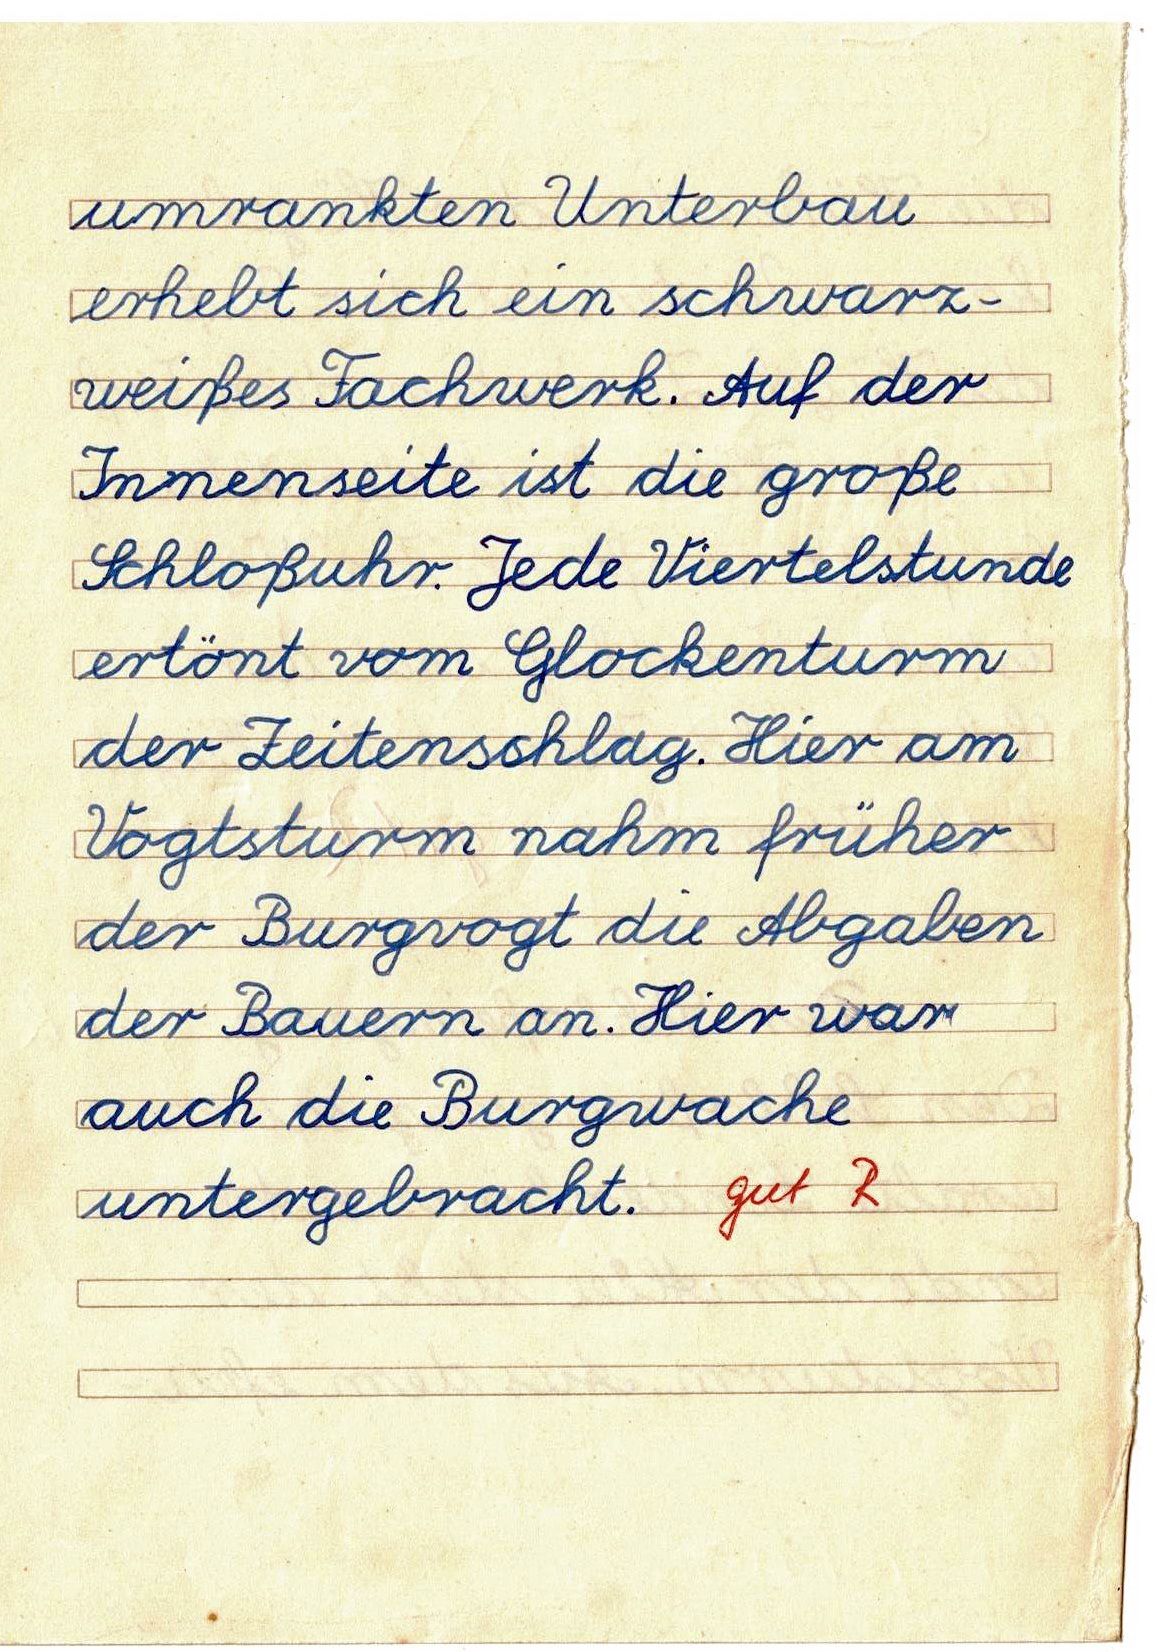 umrankten Unterbau
erhebt sich ein schwarz-
weißes Fachwerk. Auf der
Innenseite ist die große
Schloßuhr. Jede Viertelstunde
ertönt vom Glockenturm
der Zeitenschlag. Hier am
Vogtsturm nahm früher
der Burgvogt die Abgaben
der Bauern an. Hier war
auch die Burgwache
untergebracht. gut R